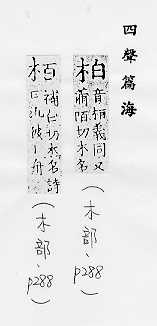 四聲篇海
柏 音栢義同又
蒲陌切木名
（木部、p288）
栢 補伯切木名詩
曰汎彼丨舟
（木部、p288）